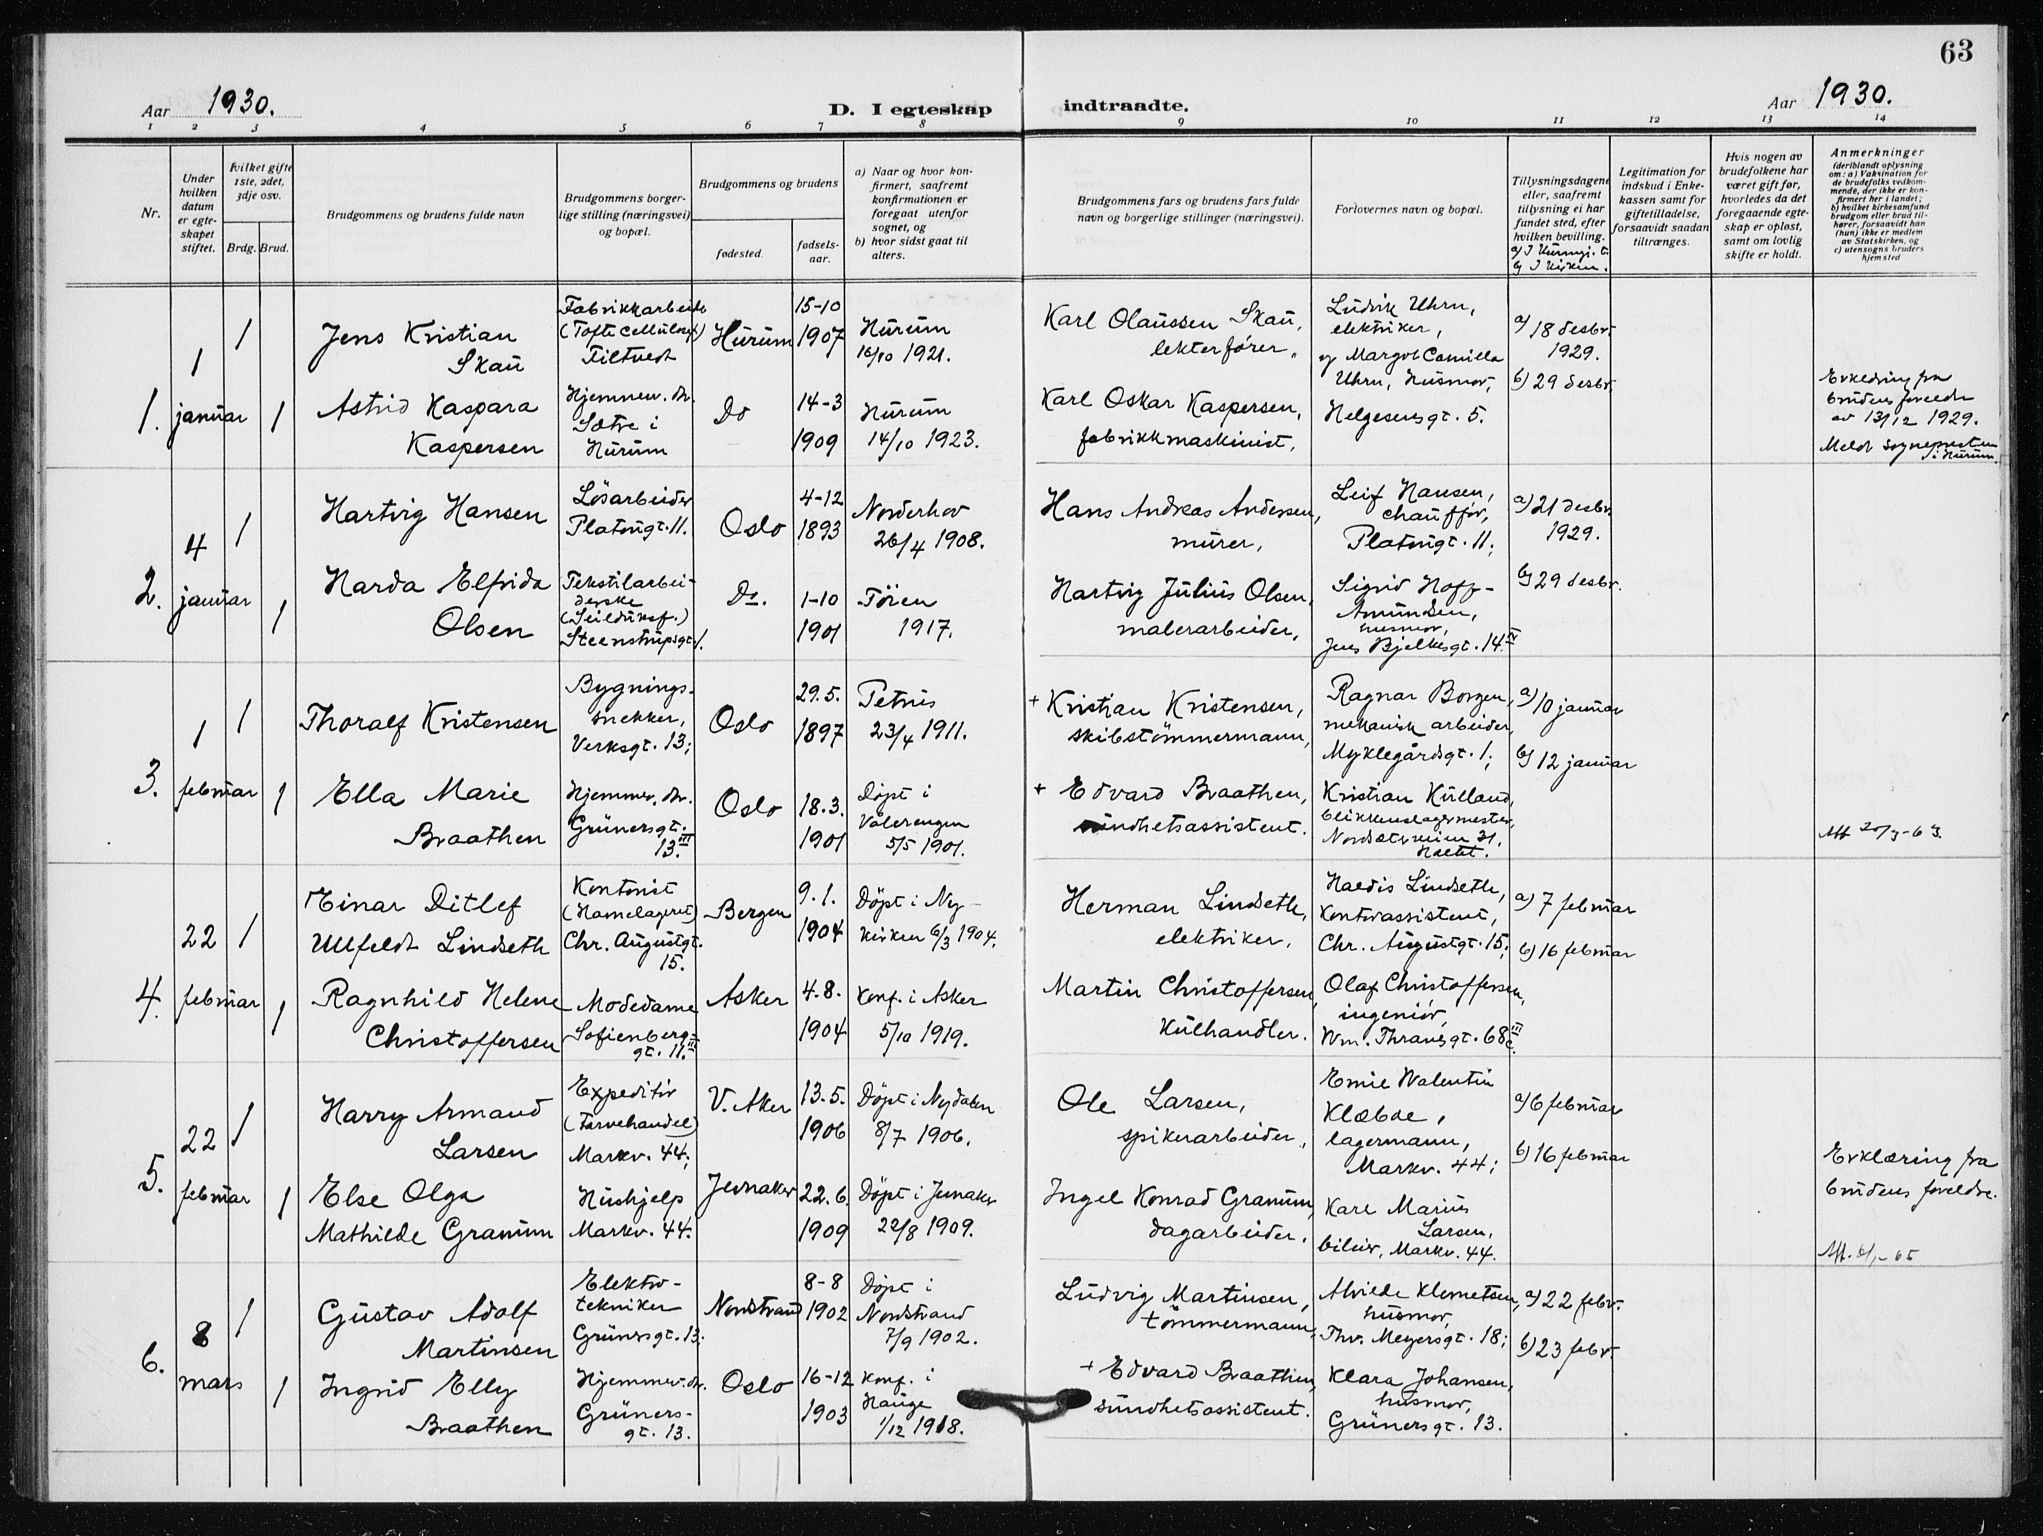 63
Aar 1930.
D. I egteskap indtraadte.
Aar 1930.
1 2 3 4 5 6 7 8 9 10 11 12 13 14
Nr.
Under hvilken datum er egteskapet stiftet.
Hvilket gifte 1ste, 2det, 3dje osv.
Brdg. Brud.
Brudgommens og brudens fulde navn
Brudgommens borgerlige stilling (næringsvei) og bopæl.
Brudgommens og brudens
fødested.
fødselsaar.
a) Naar og hvor konfirmert, saafremt konfirmationen er foregaat utenfor sognet, og
b) hvor sidst gaat til alters.
Brudgommens fars og brudens fars fulde navn og borgerlige stillinger (næringsvei).
Forlovernes navn og bopæl.
Tillysningsdagene eller, saafremt tillysning ei har fundet sted, efter hvilken bevilling.
b) I Kirken.
Legitimation for indskud i Enkekassen samt for giftetilladelse, forsaavidt saadan tiltrænges.
Hvis nogen av brudefolkene har været gift før, hvorledes da det foregaaende egteskap er opløst, samt om lovlig skifte er holdt.
Anmerkninger
(deriblandt oplysning om: a) Vaksination for de brudefolks vedkommende, der ikke er konfirmert her i landet; b) hvilket kirkesamfund brudgom eller brud tilhører, forsaavidt han (hun) ikke er medlem av Statskirken, og c) utensogns bruders hjemsted
1.
1 januar
1
Jens Kristian
Skau
Fabrikkarbeider
(Tofte Cellulosef.)
Filtvedt
Hurum
15-10
1907
Hurum
16/10 1921.
Karl Olaussen Skau,
lekterfører.
Ludvik Uhrn,
elektriker,
og Margot Camilla
Uhrn, husmor,
Helgesensgt. 5.
a) 18 desbr.
1929.
b) 29 desbr.
1
Astrid Kaspara
Kaspersen
Hjemmev. dr.
Sætre i
Hurum
Do
14-3
1909
Hurum
14/10 1923.
Karl Oskar Kaspersen,
fabrikkmaskinist.
Erklæring fra
brudens foreldre
av 13/12 1929.
Meldt sognepresten
i Hurum.
2.
4 januar
1
Hartvig Hansen
Løsarbeider
Platougt. 11.
Oslo
4-12
1893
Norderhov
26/4 1908.
Hans Andreas Andersen,
murer,
Leif Hansen,
chauffør,
Platougt. 11;
a) 21 desbr.
1929.
b) 29 desbr.
1
Harda Elfrida
Olsen
Tekstilarbeiderske
(Seilduksf.)
Steenstrupsgt. 1.
Do.
1-10
1901
Föien
1917.
Hartvig Julius Olsen,
malerarbeider,
Sigrid Hoff-
Amundsen,
husmor,
Jens Bjelkesgt. 14 IV
3.
1 februar
1
Thoralf Kristensen
Bygnings-
snekker,
Verksgt. 13;
Oslo
29.5.
1897
Petrus
23/4 1911.
+ Kristian Kristensen,
skibstömmermann,
Ragnar Borgen,
mekanisk arbeider,
Myklegårdsgt. 1;
a) 10 januar
b) 12 januar
1
Ella Marie
Braathen
Hjemmev. dr.
Grünersgt.
13. III
Oslo
18.3.
1901
Döpt i
Vålerengen
5/5 1901.
+ Edvard Braathen,
sundhetsassistent.
Kristian Külland,
blikkenslagermester,
Nordstrveien 31.
Att 20/3-63.
4.
22 februar
1
Einar Ditlef
Ulfeldt Lindseth
Kontorist
(Hamelageret)
Chr. Augustgt.
15.
Bergen
9.1.
1904
Döpt i Ny-
kirken 6/3 1904.
Herman Lindseth,
elektriker.
Haldis Lindseth,
kontorassistent,
Chr. Augustgt. 15;
a) 7 februar
b) 16 februar
1
Ragnhild Helene
Christoffersen
Modedame
Sofienberg-
gt. 11. III
Asker
4.8.
1904
Konf. i Asker
5/10 1919.
Martin Christoffersen,
kulhandler.
Olaf Christoffersen,
ingeniør,
Wm. Thranesgt. 68 III c.
5.
22 februar
1
Harry Armand
Larsen
Expeditör
(Farvehandel)
Markv. 44;
V. Aker
13.5.
1906
Döpt i Nydalen
8/7 1906.
Ole Larsen,
spikerarbeider,
Emil Valentin
Klæboe,
lagermann,
Markv. 44;
a) 6 februar
b) 16 februar
1
Else Olga
Mathilde Granum
Hushjelp
Markv. 44.
Jevnaker
22.6.
1909
Döpt i Jevnaker
22/8 1909.
Ingel Konrad Granum,
dagarbeider.
Karl Marius
Larsen,
bileier, Markv. 44.
Erklæring fra
brudens foreldre.
6.
8 mars
1
Gustav Adolf
Martinsen
Elektro-
tekniker
Grünersgt. 13.
Nordstrand
8-8
1902
Döpt i
Nordstrand
7/9 1902.
Ludvig Martinsen,
tömmermann,
Alvilde Klemetsen,
husmor,
Thv. Meyersgt. 18;
a) 22 febr.
b) 23 febr.
1
Ingrid Elly
Braathen
Hjemmev. dr.
Grüners-
gt. 13.
Oslo
16-12
1903
Konf. i
Hauge
1/12 1918.
+ Edvard Braathen,
sundhetsassistent.
Klara Johansen,
husmor,
Grünersgt. 13.